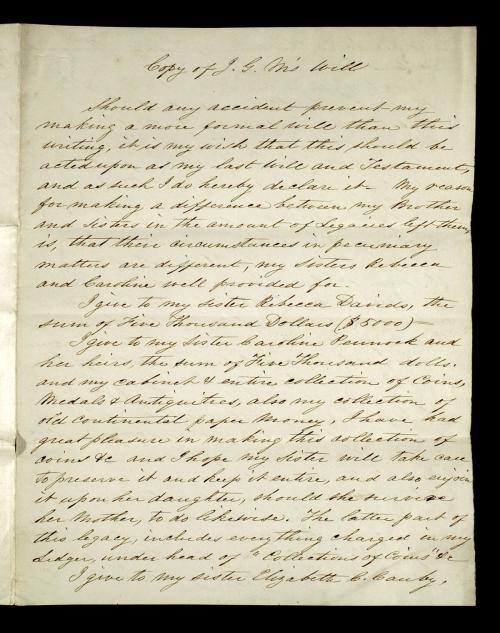 Copy of J. G. M's Will
Should any accident prevent my
making a more formal will than this
writing, it is my wish that this should be
acted upon as my last Will and Testament,
and as such I do hereby declare it - My reason
for making a difference between my Brother
and Sisters in the amount of Legacies left them,
is, that their circumstances in pecuniary
matters are different, my Sisters Rebecca
and Caroline well provided for.
I give to my sister Rebecca Davids, the
sum of Five Thousand Dollars ($5000) -
I give to my sister Caroline Pennock and
her heirs, the sum of Five Thousand dolls.
and my cabinet & entire collection of Coins,
Medals & Antiquities, also my collection of
old continental paper money, I have had
great pleasure in making this collection of
coins &c and I hope my sister will take care
to preserve it and keep it entire, and also enjoin
it upon her daughter, should she survive
her Mother, to do likewise. The latter part of
this legacy, includes everything charged in my
Ledger, under head of "Collections of Coins" &c
I give to my sister Elizabeth C. Canby,